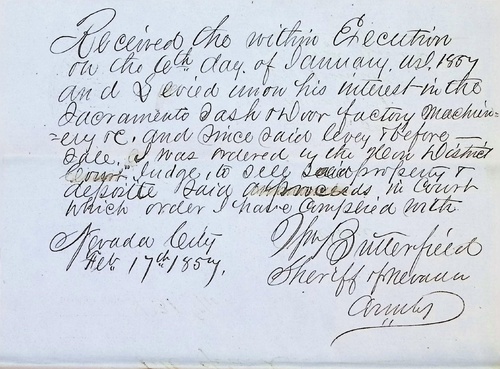 Received the within Execution
on the 6th day of January A.D. 1857
and Levied upon his interest in the
Sacramento Sash & Door factory Machin-
=ery &c. and since said levey & before
sale, I was ordered by the Hon District
Court Judge, to sell said property &
deposite said proceeds in Court
which order I have complied with
Nevada City
Feb. 17th 1857,
Wm Butterfield
Sheriff of Nevada
County